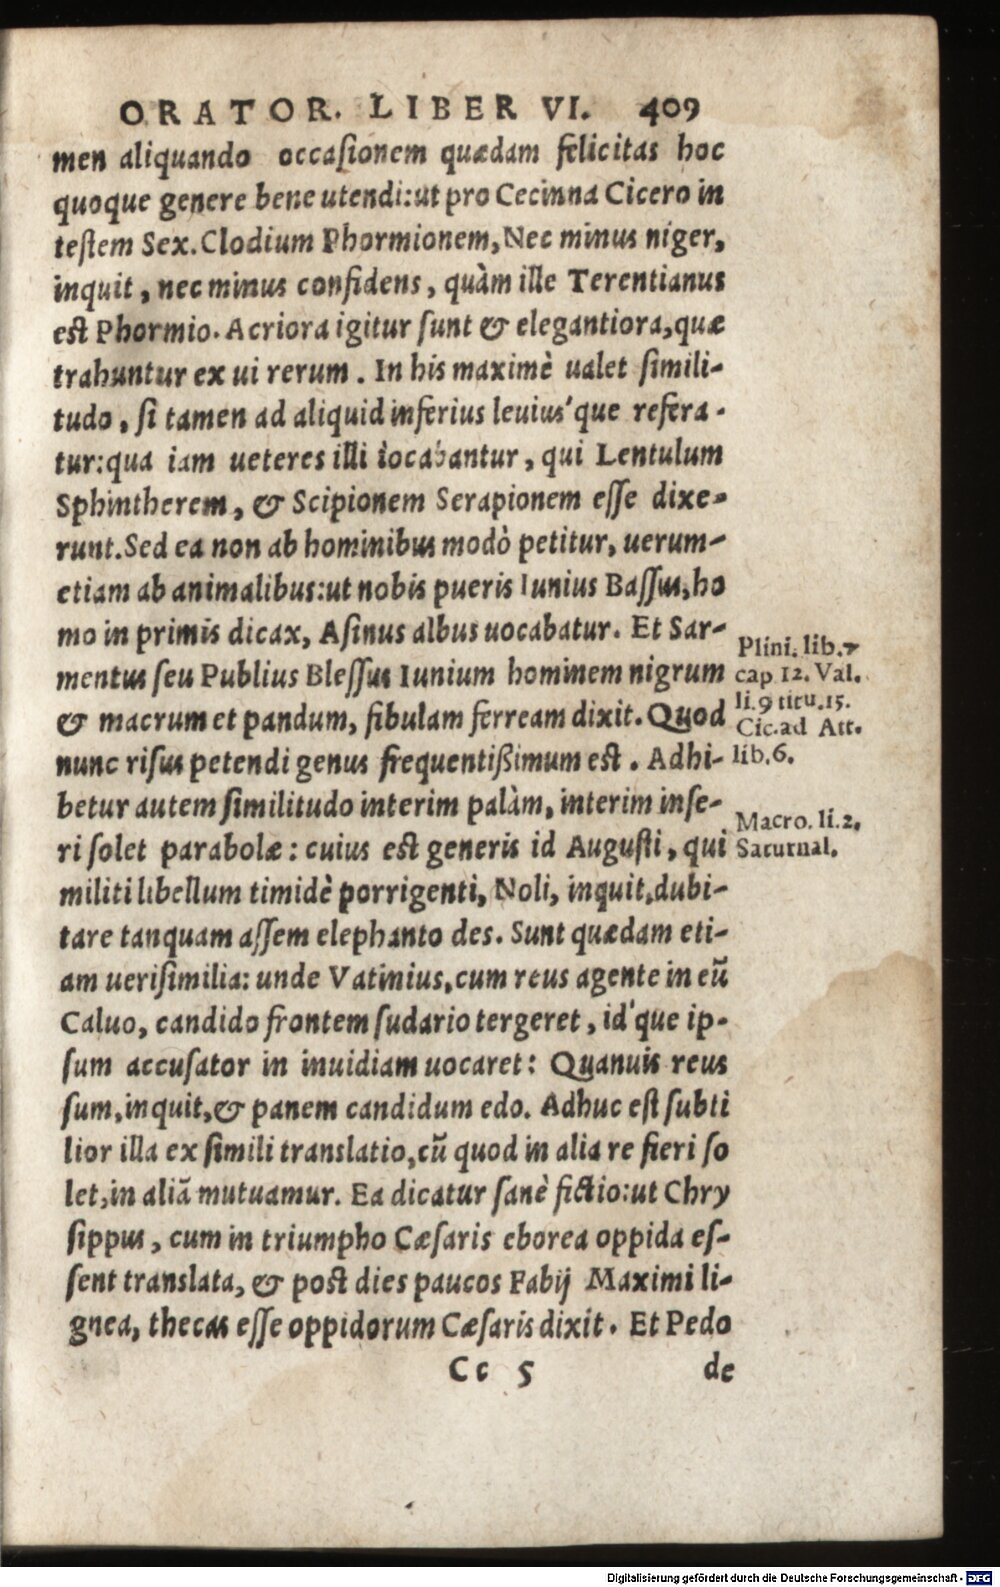 ORATOR. LIBER VI. 409
men aliquando occasionem quædam felicitas hoc
quoque genere bene utendi:ut pro Cecinna Cicero in
testem Sex.Clodium Phormionem,Nec minus niger,
inquit, nec minus confidens, quàm ille Terentianus
est Phormio. Acriora igitur sunt & elegantiora,quæ
trahuntur ex ui rerum. In his maximè ualet simili-
tudo, si tamen ad aliquid inferius leuius'que refera-
tur:qua iam ueteres illi iocabantur, qui Lentulum
Sphintherem, & Scipionem Serapionem esse dixe-
runt.Sed ea non ab hominibus modò petitur, uerum-
etiam ab animalibus:ut nobis pueris Iunius Bassus,ho
mo in primis dicax, Asinus albus uocabatur. Et Sar-
mentus seu Publius Blessus Iunium hominem nigrum
& macrum et pandum, fibulam ferream dixit. Quod
nunc risus petendi genus frequentißimum est. Adhi-
betur autem similitudo interim palàm, interim inse-
ri solet parabolæ: cuius est generis id Augusti, qui
militi libellum timidè porrigenti, Noli, inquit,dubi-
tare tanquam assem elephanto des. Sunt quædam eti-
am uerisimilia: unde Vatinius,cum reus agente in eũ
Caluo, candido frontem sudario tergeret, id'que ip-
sum accusator in inuidiam uocaret: Quanuis reus
sum,inquit,& panem candidum edo. Adhuc est subti
lior illa ex simili translatio,cũ quod in alia re fieri so
let,in aliã mutuamur. Ea dicatur sanè fictio:ut Chry
sippus, cum in triumpho Cæsaris eborea oppida es-
sent translata, & post dies paucos Fabij Maximi li-
gnea, thecas esse oppidorum Cæsaris dixit. Et Pedo
Cc 5 de
Plini. lib.7
cap 12. Val.
li.9 titu.15.
Cic.ad Att.
lib.6.
Macro. li.2.
Saturnal.
Digitalisierung gefördert durch die Deutsche Forschungsgemeinschaft - DFG